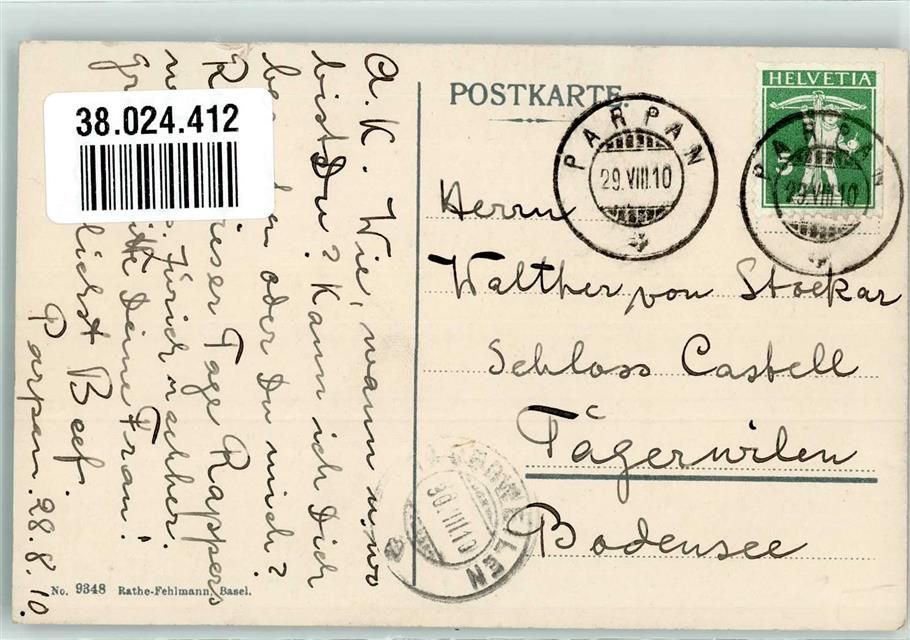 38.024.412
POSTKARTE
HELVETIA
5
PARPAN
29.VIII.10
PARPAN
29.VIII.10
Herrn
Walther von Stockar
Schloss Castell
Tägerwilen
Bodensee
30.VIII.10
A. K. Wie, wann u. wo
bist Du? Kann ich Dich
oder Du mich?
dieser Tage Rappers
Zürich nachher.
Deine Frau!
Beef.
Parpan. 28.8.10.
No. 9348 Rathe-Fehlmann, Basel.